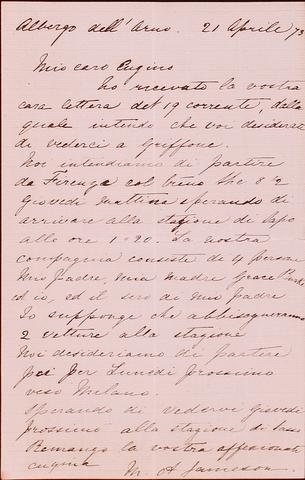 Albergo dell' Arno. 21 Aprile 73
Mio caro Cugino
ho ricevato la vostra
cara lettera del 19 corrente, dala
quale intendo che voi desiderai
di vederci a Griffone.
Noi intendiamo di partire
da Firenza col treno the 8½
Giovedi mattina sperando di
arrivare alla stazione di
alle ore 1·20. La nostra
compagnia consiste de 4 persone
Mio padre, mia madre Grace
ed io, ed il sero di mio padre
Io suppongo che abbisogneramo
2 vetture alla stagione
Noi desideriamo di partire
poi per Lunedi prossimo
verso Milano.
Sperando di vedervi Giovedi
prossimo alla stagione di
Remango la vostra affexionate
cugina M. A Jameson.